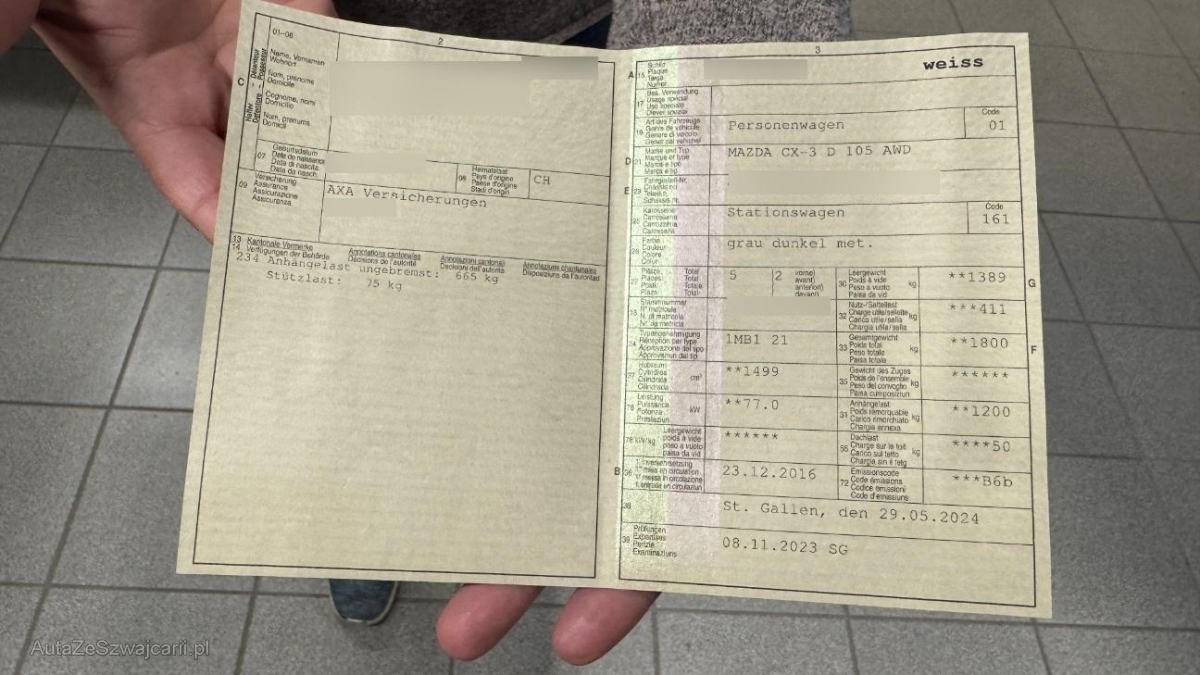 2
01-06
Name, Vornamen
Wohnort
Nom, prénoms
Domicile
Cognome, nomi
Domicilio
Num, prenums
Domicil
C
Halter - Détenteur
Detentore - Possessur
07
Geburtsdatum
Date de naissance
Data di nascita
Data da nasch.
08
Heimatstaat
Pays d'origine
Paese d'origine
Stadi d'origin
CH
09
Versicherung
Assurance
Assicurazione
Assicuranza
AXA Versicherungen
13 Kantonale Vermerke
14 Verfügungen der Behörde
Annotations cantonales
Décisions de l'autorité
Annotazioni cantonali
Decisioni dell'autorità
Annotaziuns chantunalas
Disposiziuns da l'autoritad
234 Anhängelast ungebremst: 665 kg
Stützlast: 75 kg
3
A
15
Schild
Plaque
Targa
Numer
weiss
17
Bes. Verwendung
Usage spécial
Uso speciale
Diever spezial
Art des Fahrzeugs
Genre de véhicule
Genere di veicolo
Gener dal vehichel
Personenwagen
Code
01
D
21
Marke und Typ
Marque et type
Marca e tipo
Marca e tip
MAZDA CX-3 D 105 AWD
E
23
Karosserie
Carrosserie
Carrozzeria
Carossaria
Stationswagen
Code
161
26
Farbe
Couleur
Colore
Colur
grau dunkel met.
Plätze
Places
Posti
Plazs
Total
Total
Totale
Total
5
2
vorne)
avant)
anteriori)
davant)
30
Leergewicht
Poids à vide
Peso a vuoto
Paisa da vid
kg
**1389
G
18
Stammnummer
N° matricule
N. di matricola
Nr. da matricla
32
Nutz-/Sattellast
Charge utile/sellette
Carico utile/sella
Chargia utila/sella
kg
***411
24
Typengenehmigung
Réception par type
Approvazione del tipo
Approvaziun dal tip
1MB1 21
33
Gesamtgewicht
Poids total
Peso totale
Paisa totala
kg
**1800
F
37
Hubraum
Cylindrée
Cilindrata
Cilindrada
cm³
**1499
35
Gewicht des Zuges
Poids de l'ensemble
Peso del convoglio
Paisa cumposiziun
kg
******
76
Leistung
Puissance
Potenza
Prestaziun
kW
**77.0
31
Anhängelast
Poids remorquable
Carico rimorchiato
Chargia annexa
kg
**1200
78 kW/kg
Leergewicht
poids à vide
peso a vuoto
paisa da vid
******
55
Dachlast
Charge sur le toit
Carico sul tetto
Chargia sin il tetg
kg
****50
B
36
1. Inverkehrsetzung
1re mise en circulation
1a messa in circolazione
1. entrada en circulaziun
23.12.2016
72
Emissionscode
Code émissions
Codice emissioni
Code d'emissiuns
***B6b
38
St. Gallen, den 29.05.2024
39
Prüfungen
Expertises
Perizie
Examinaziuns
08.11.2023 SG
AutaZeSzwajcarii.pl